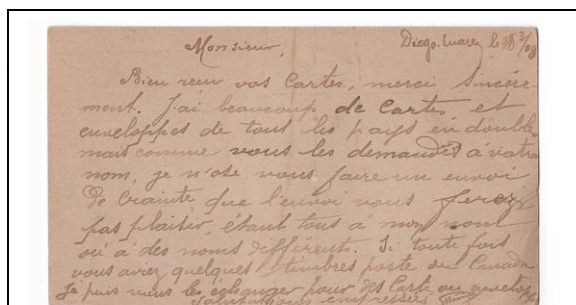 Monsieur, Diego-Suarez le
Bien reçu vos Cartes, merci sincère-
ment. J'ai beaucoup de Cartes et
enveloppes de tout les pays en double
mais comme vous les demandés à votre
nom, je n'ose vous faire un envoi
de crainte que l'envoi vous
pas plaisir, étant tous à mon nom
où à des noms différent. Si toute fois
vous avez quelques timbres poste du Canada
Je puis vous les échanger pour des Carte ou
empressées